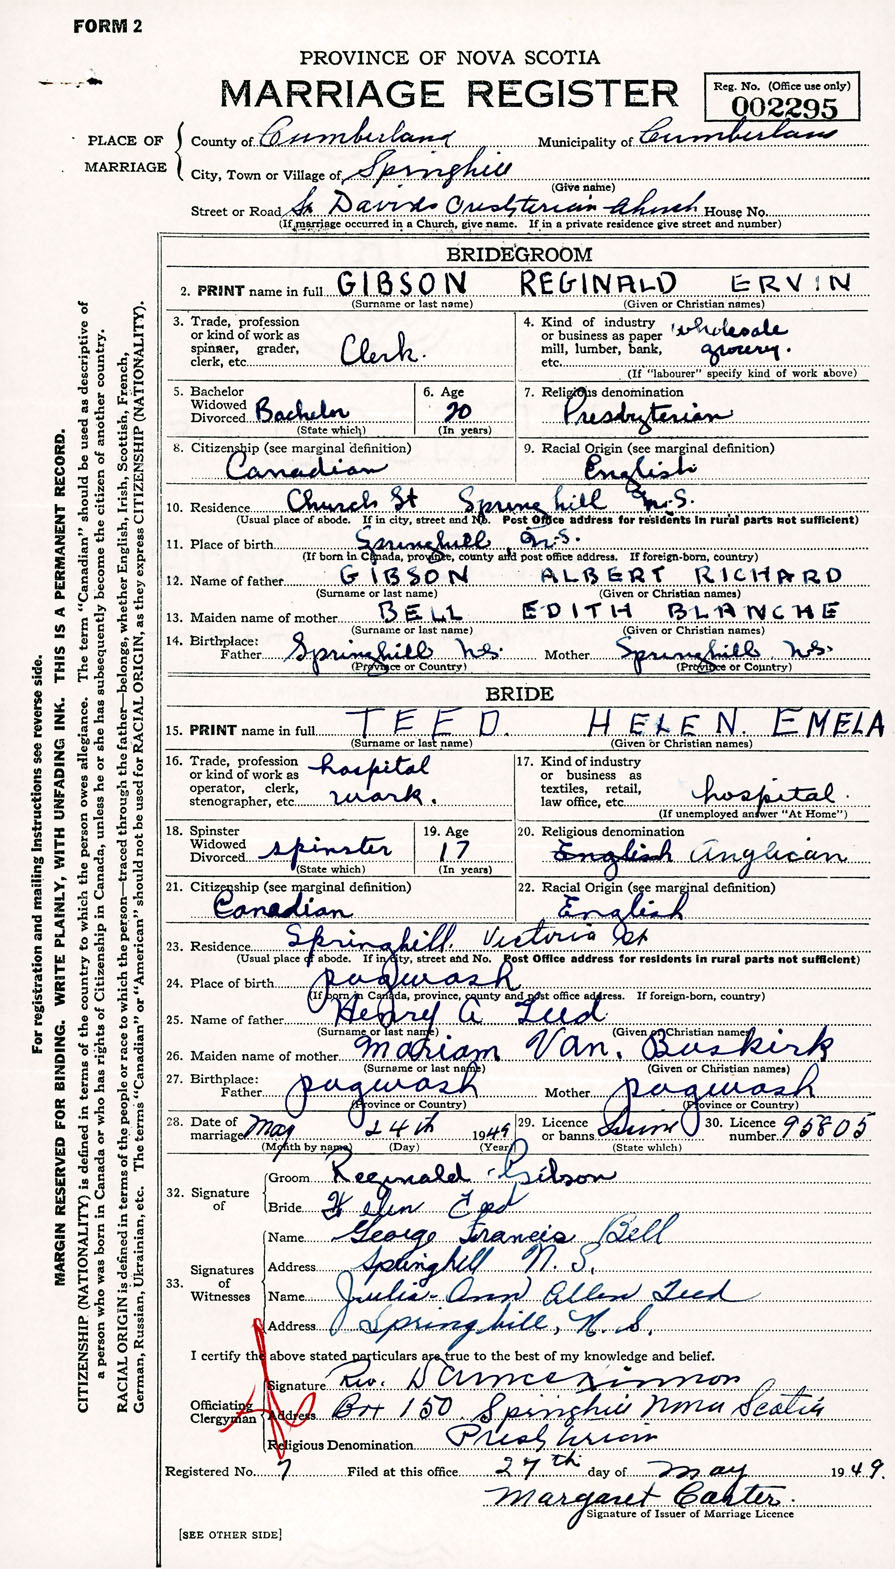 FORM 2
PROVINCE OF NOVA SCOTIA
MARRIAGE REGISTER
Reg. No. (Office use only)
002295
PLACE OF MARRIAGE
County of Cumberland Municipality of Cumberland
City, Town or Village of Springhill
(Give name)
Street or Road St Davids Presbyterian Church House No.
(If marriage occurred in a Church, give name. If in a private residence give street and number)
BRIDEGROOM
2. PRINT name in full GIBSON REGINALD ERVIN
(Surname or last name) (Given or Christian names)
3. Trade, profession or kind of work as spinner, grader, clerk, etc. Clerk.
4. Kind of industry or business as paper mill, lumber, bank, etc. wholesale grocery.
(If "labourer" specify kind of work above)
5. Bachelor Widowed Divorced Bachelor
(State which)
6. Age 20
(In years)
7. Religious denomination
Presbyterian
8. Citizenship (see marginal definition)
Canadian
9. Racial Origin (see marginal definition)
English
10. Residence Church St Springhill N.S.
(Usual place of abode. If in city, street and No. Post Office address for residents in rural parts not sufficient)
11. Place of birth Springhill N.S.
(If born in Canada, province, county and post office address. If foreign-born, country)
12. Name of father GIBSON ALBERT RICHARD
(Surname or last name) (Given or Christian names)
13. Maiden name of mother BELL EDITH BLANCHE
(Surname or last name) (Given or Christian names)
14. Birthplace: Father Springhill N.S. Mother Springhill N.S.
(Province or Country) (Province or Country)
BRIDE
15. PRINT name in full TEED. HELEN. EMELA
(Surname or last name) (Given or Christian names)
16. Trade, profession or kind of work as operator, clerk, stenographer, etc. hospital work.
17. Kind of industry or business as textiles, retail, law office, etc. hospital.
(If unemployed answer "At Home")
18. Spinster Widowed Divorced spinster
(State which)
19. Age 17
(In years)
20. Religious denomination
English Anglican
21. Citizenship (see marginal definition)
Canadian
22. Racial Origin (see marginal definition)
English
23. Residence Springhill. Victoria St
(Usual place of abode. If in city, street and No. Post Office address for residents in rural parts not sufficient)
24. Place of birth pugwash
(If born in Canada, province, county and post office address. If foreign-born, country)
25. Name of father Henry A Teed
(Surname or last name) (Given or Christian names)
26. Maiden name of mother Mariam Van. Buskirk
(Surname or last name) (Given or Christian names)
27. Birthplace: Father pugwash Mother pugwash
(Province or Country) (Province or Country)
28. Date of marriage May 24th 1949
(Month by name) (Day) (Year)
29. Licence or banns
(State which)
30. Licence number 95805
32. Signature of
Groom Reginald Gibson
Bride Helen Teed
33. Signatures of Witnesses
Name George Francis Bell
Address Springhill N. S.
Name Julia Ann Allen Teed
Address Springhill, N. S.
I certify the above stated particulars are true to the best of my knowledge and belief.
Officiating Clergyman
Signature Rev.
Address Box 150 Springhill Nova Scotia
Religious Denomination Presbyterian
Registered No. 7 Filed at this office 27th day of May 1949.
Margaret Carter.
Signature of Issuer of Marriage Licence
[SEE OTHER SIDE]
For registration and mailing instructions see reverse side.
MARGIN RESERVED FOR BINDING. WRITE PLAINLY, WITH UNFADING INK. THIS IS A PERMANENT RECORD.
CITIZENSHIP (NATIONALITY) is defined in terms of the country to which the person owes allegiance. The term "Canadian" should be used as descriptive of
a person who was born in Canada or who has rights of Citizenship in Canada, unless he or she has subsequently become the citizen of another country.
RACIAL ORIGIN is defined in terms of the people or race to which the person—traced through the father—belongs, whether English, Irish, Scottish, French,
German, Russian, Ukrainian, etc. The terms "Canadian" or "American" should not be used for RACIAL ORIGIN, as they express CITIZENSHIP (NATIONALITY).